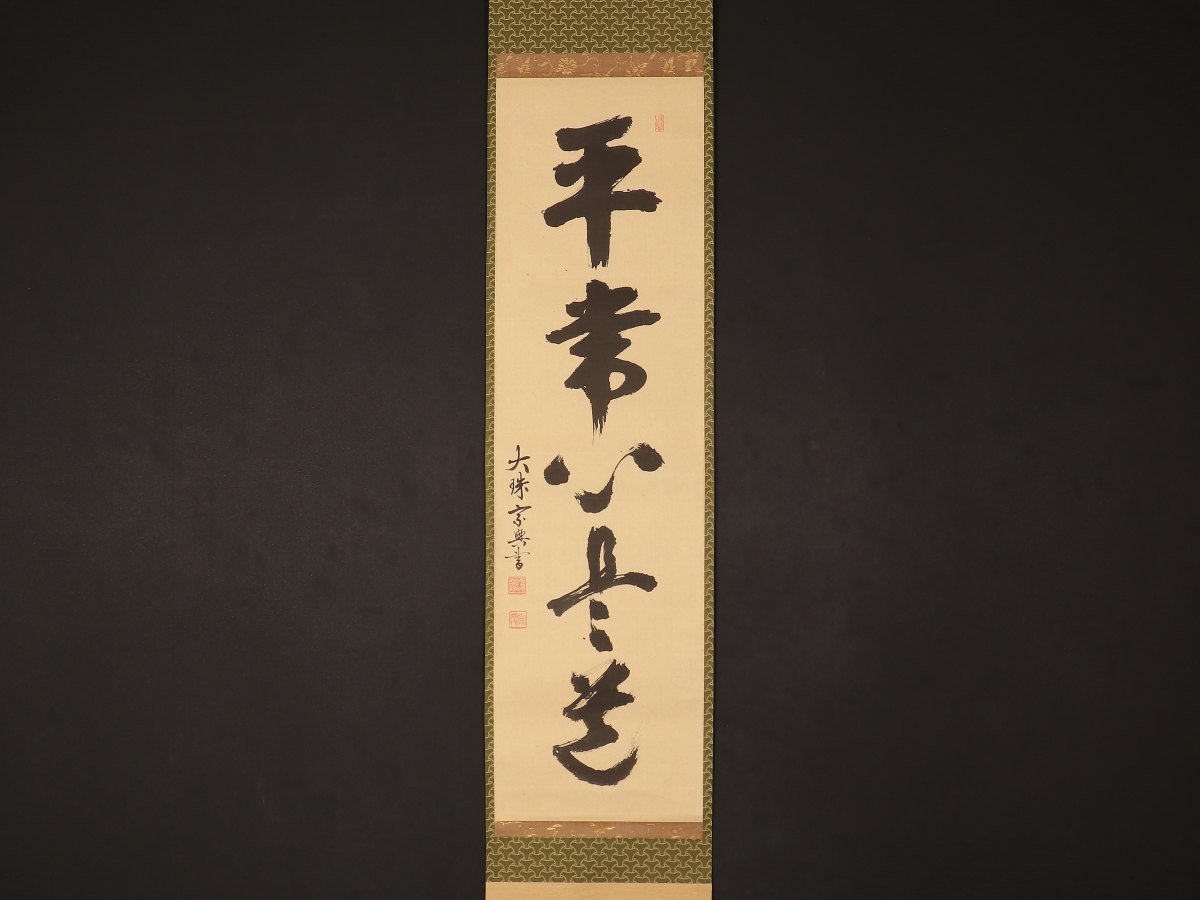 平常心是道
大珠宗典書